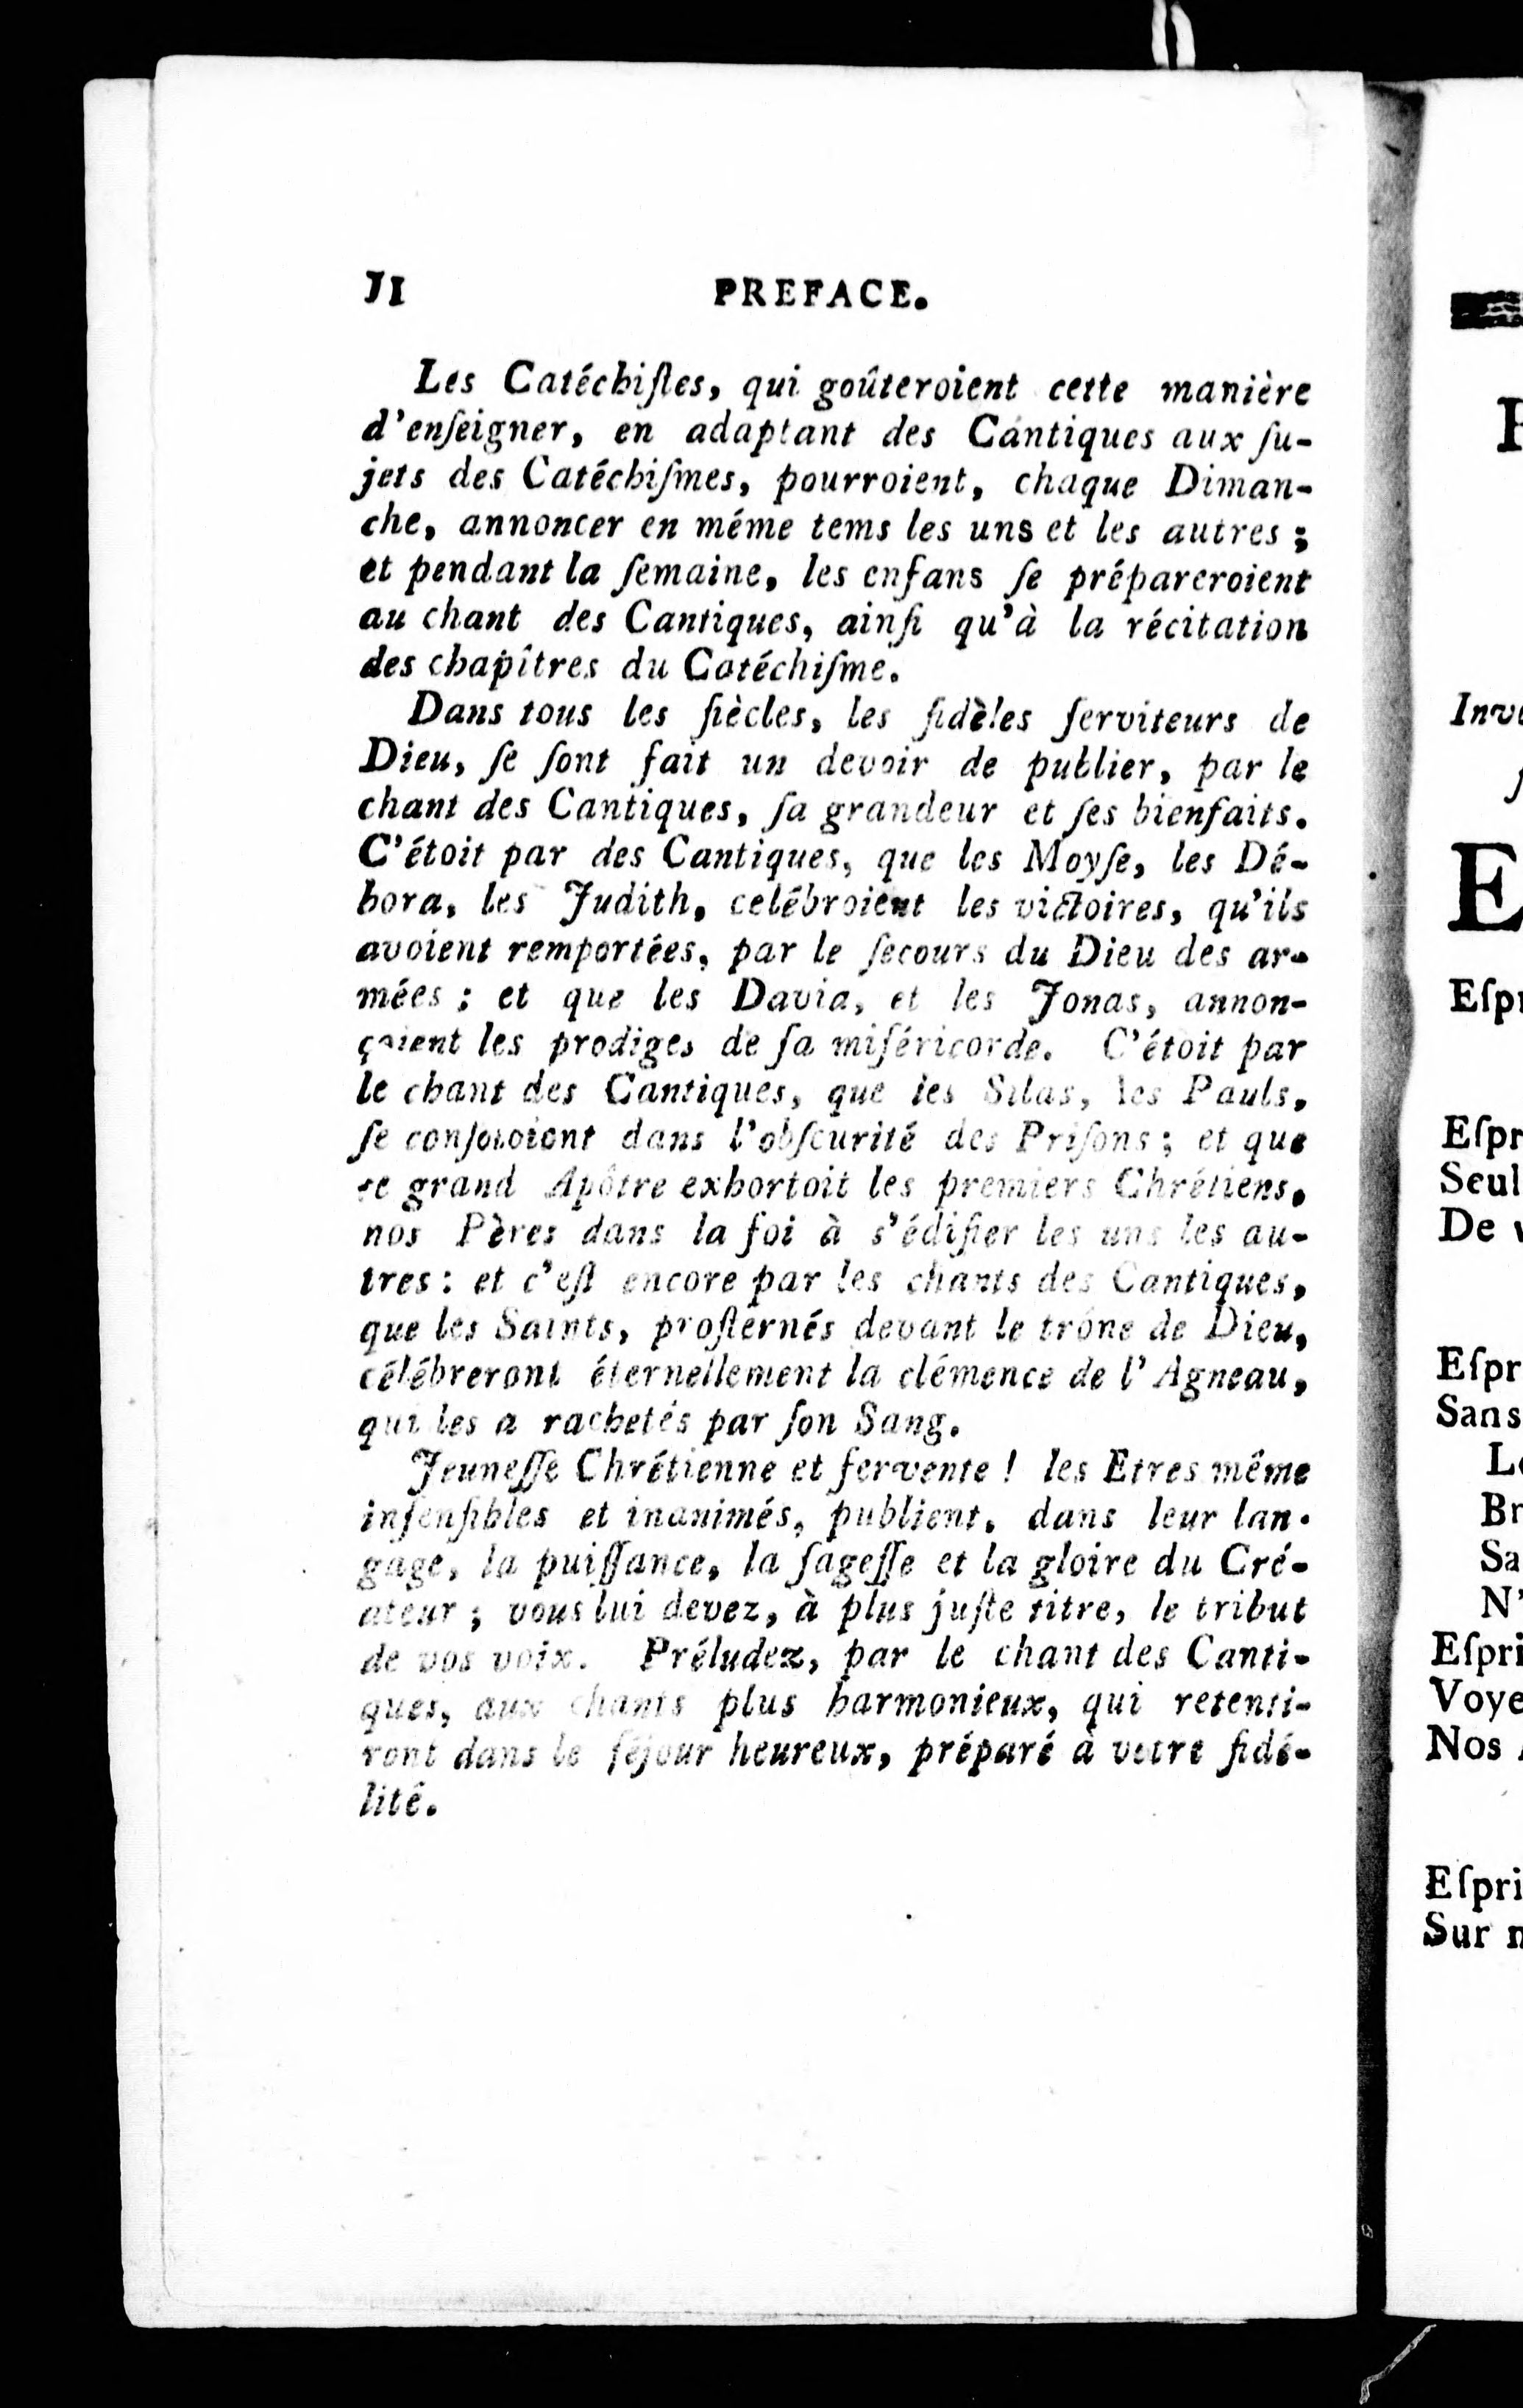 II PREFACE.
Les Catéchiſtes, qui goûteroient cette manière
d'enſeigner, en adaptant des Cantiques aux ſu-
jets des Catéchiſmes, pourroient, chaque Diman-
che, annoncer en méme tems les uns et les autres ;
et pendant la ſemaine, les enfans ſe prépareroient
au chant des Cantiques, ainſi qu'à la récitation
des chapîtres du Catéchiſme.
Dans tous les ſiècles, les fidèles ſerviteurs de
Dieu, ſe ſont fait un devoir de publier, par le
chant des Cantiques, ſa grandeur et ſes bienfaits.
C'étoit par des Cantiques, que les Moyſe, les Dé-
bora, les Judith, celébroient les victoires, qu'ils
avoient remportées, par le ſecours du Dieu des ar-
mées ; et que les David, et les Jonas, annon-
çoient les prodiges de ſa miſéricorde. C'étoit par
le chant des Cantiques, que les Silas, les Pauls,
ſe conſoloient dans l'obſcurité des Priſons ; et que
ce grand Apôtre exhortoit les premiers Chrétiens,
nos Pères dans la foi à s'édifier les uns les au-
tres : et c'eſt encore par les chants des Cantiques,
que les Saints, proſternés devant le trône de Dieu,
célébreront éternellement la clémence de l'Agneau,
qui les a rachetés par ſon Sang.
Jeuneſſe Chrétienne et fervente ! les Etres même
inſenſibles et inanimés, publient, dans leur lan-
gage, la puiſſance, la ſageſſe et la gloire du Cré-
ateur ; vous lui devez, à plus juſte titre, le tribut
de vos voix. Préludez, par le chant des Canti-
ques, aux chants plus harmonieux, qui retenti-
ront dans le ſéjour heureux, préparé à votre fidé-
lité.
E
Eſpr
Seul
De
Eſpr
Sans
Br
Sa
N'
Eſpri
Voye
Nos
Eſpri
Sur